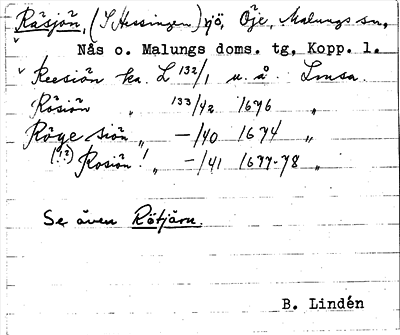 Råsjön, (S Hessingen) sjö, Öje, Malungs sn,
Nås o. Malungs doms. tg, Kopp. l.
Reesiön ka. L 132/1 u. å. Lmsa.
Rösiön " 133/42 1676 "
Röge siön " -/40 1674 "
(?) Rosiön! " -/41 1677-78 "
Se även Rötjärn.
B. Lindén